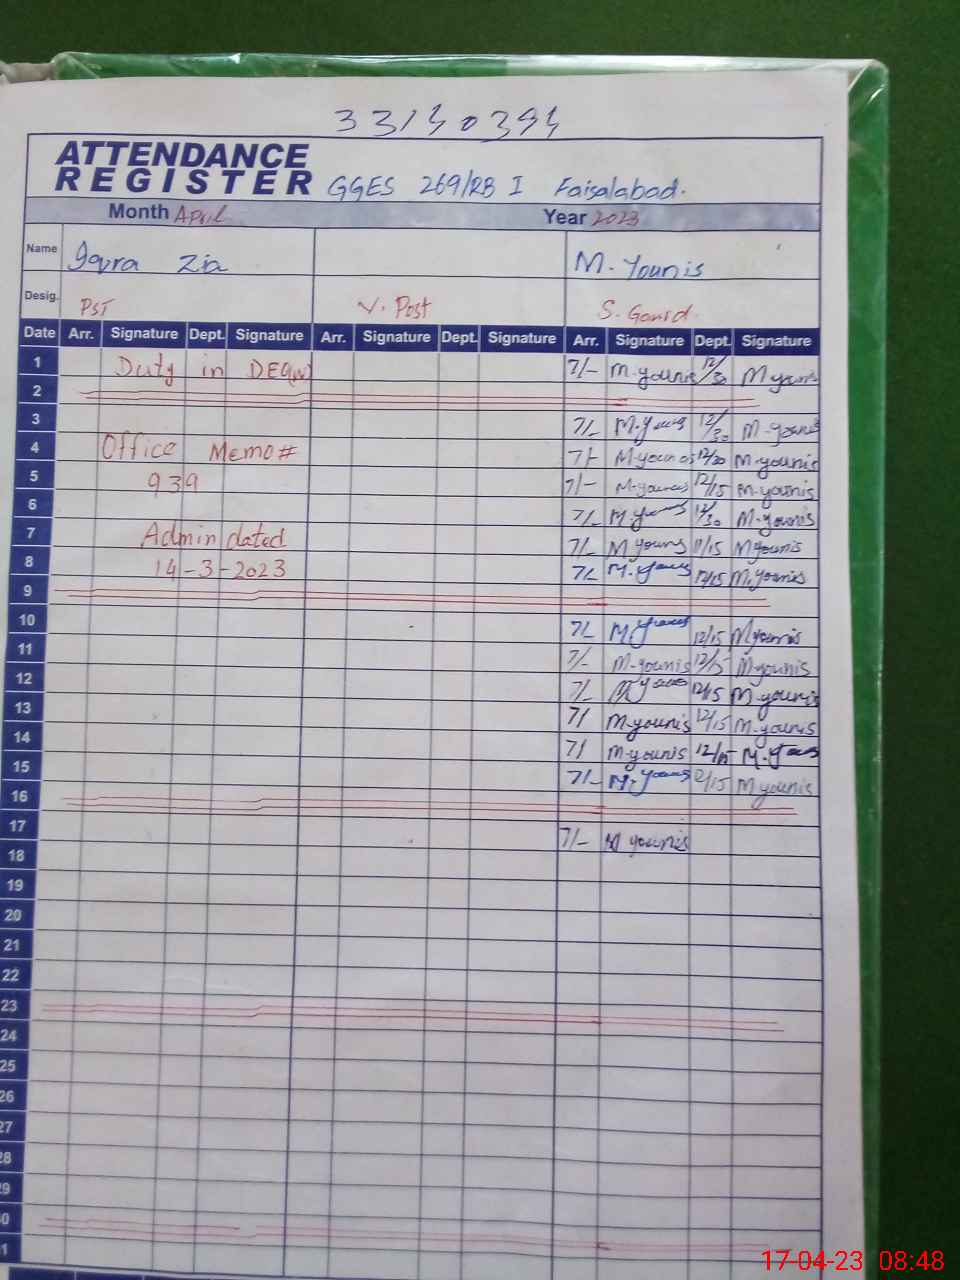 33140394
ATTENDANCE
REGISTER GGES 269/RB I Faisalabad.
Month April Year 2023
Name Iqra Zia M. Younis
Desig. PST V. Post S. Gourd.
Date Arr. Signature Dept. Signature Arr. Signature Dept. Signature Arr. Signature Dept. Signature
1 Duty in DEO(W) 7/- M.younis 12/30 M younis
2
3 7/- M.younis 12/30 M.younis
4 Office Memo# 7/- M.younis 12/30 M.younis
5 939 7/- M.younis 12/15 M.younis
6 7/- M younis 12/30 M.younis
7 Admin dated 7/- M younis 11/15 M younis
8 14-3-2023 7/- M.younis 12/15 M.younis
9
10 7/- M younis 12/15 M younis
11 7/- M.younis 12/15 M.younis
12 7/- M younis 12/15 M.younis
13 7/ M.younis 12/15 M.younis
14 7/ M.younis 12/15 M.younis
15 7/- M.younis 12/15 M younis
16
17 7/- M younis
18
19
20
21
22
23
24
25
26
27
28
29
30
31
17-04-23 08:48